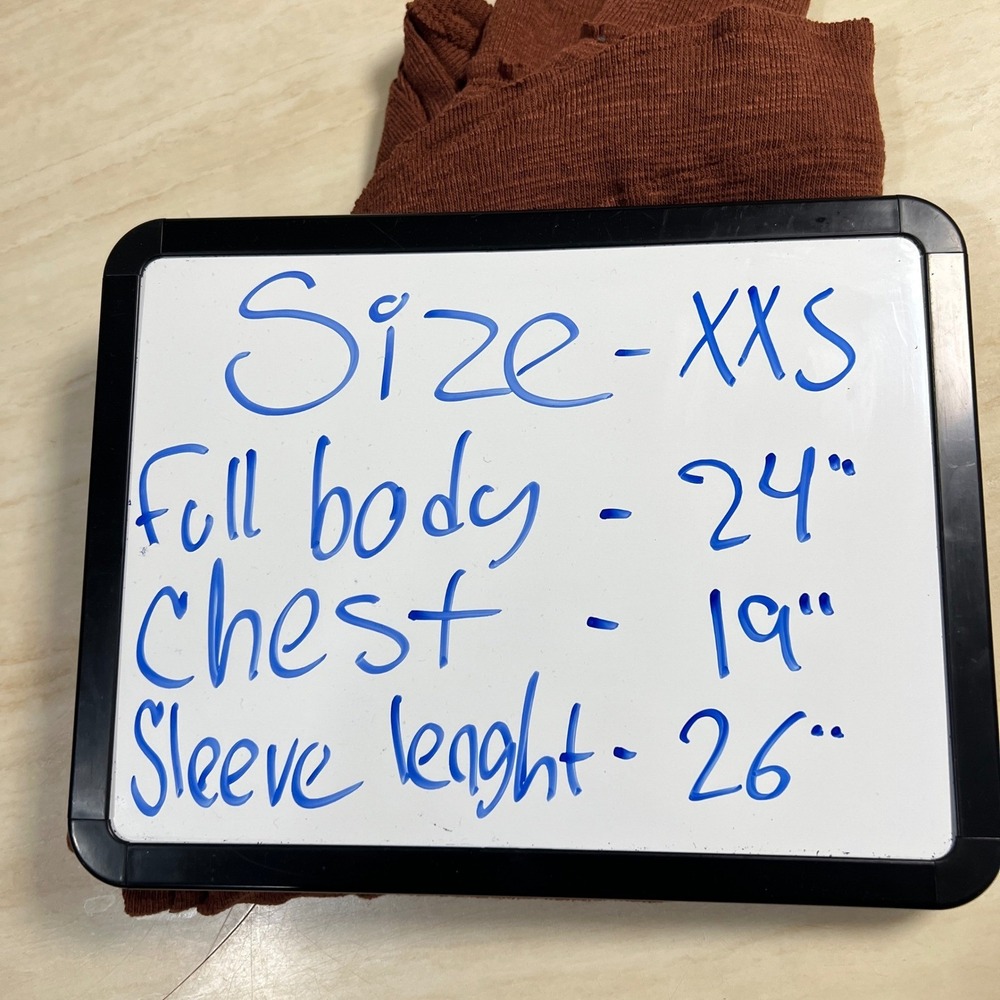 Size - XXS
Full body - 24"
Chest - 19"
Sleeve lenght - 26"